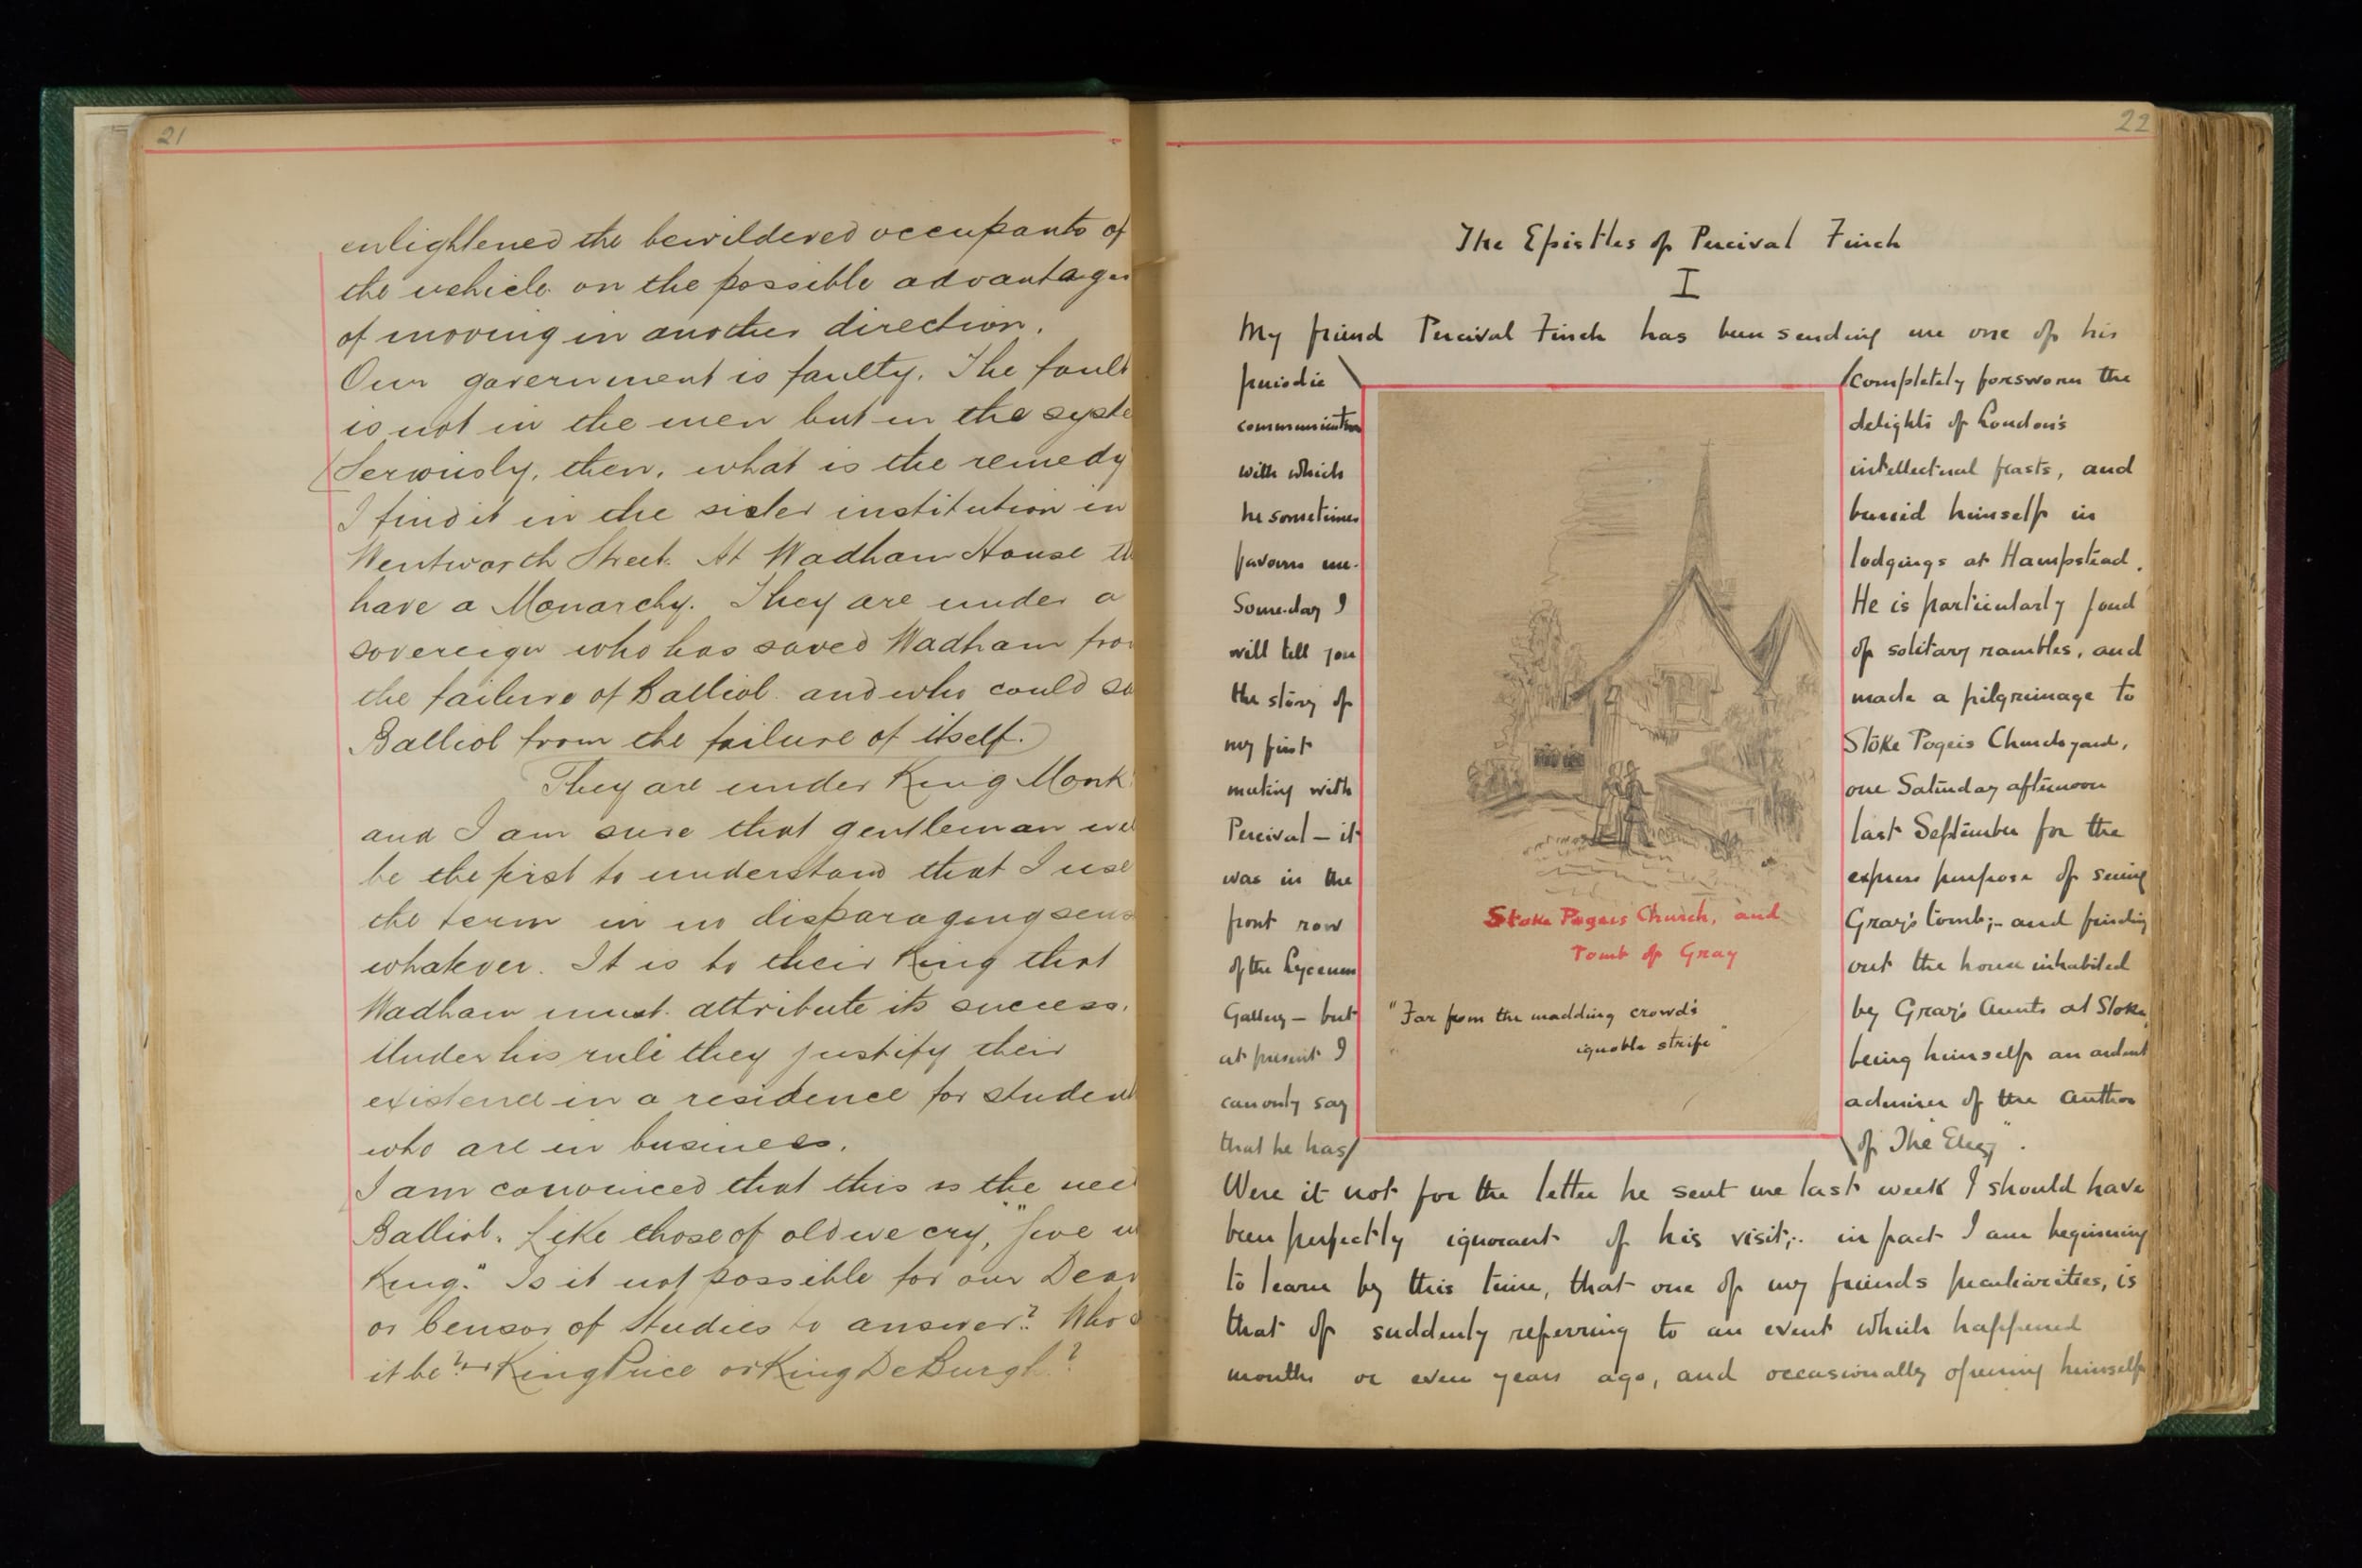 21
enlightened the bewildered occupants of
the vehicle on the possible advantages
of moving in another direction.
Our government is faulty. The fault
is not in the men but in the syste
Seriously, then, what is the remedy
I find it in the sister institution in
Wentworth Street. At Wadham House th
have a Monarchy. They are under a
sovereign who has saved Wadham from
the failure of Balliol and who could sa
Balliol from the failure of itself.
They are under King Monk
and I am sure that gentleman wil
be the first to understand that I use
the term in no disparaging sens
whatever. It is to their King that
Wadham must attribute its success.
Under his rule they justify their
existence in a residence for student
who are in business.
I am convinced that this is the nee
Balliol. Like those of old we cry, "Give u
King." Is it not possible for our Dean
or Censor of Studies to answer? Who
it be? King Price or King De Burgh?
22
The Epistles of Percival Finch
I
My friend Percival Finch has been sending me one of his
periodic
communication
with which
he sometimes
favours me.
Some-day I
will tell you
the story of
my first
meeting with
Percival – it
was in the
front row
of the Lyceum
Gallery – but
at present I
can only say
that he has
Stoke Pogeis Church, and
Tomb of Gray
"Far from the madding crowd's
ignoble strife"
completely forsworn the
delights of London's
intellectual feasts, and
buried himself in
lodgings at Hampstead.
He is particularly fond
of solitary rambles, and
made a pilgrimage to
Stoke Pogeis Churchyard,
one Saturday afternoon
last September for the
express purpose of seeing
Gray's tomb;- and finding
out the house inhabited
by Gray's Aunts at Stoke,
being himself an ardent
admirer of the author
of The "Elegy".
Were it not for the letter he sent me last week I should have
been perfectly ignorant of his visit;- in fact I am beginning
to learn by this time, that one of my friends peculiarities, is
that of suddenly referring to an event which happened
months or even years ago, and occasionally opening himself